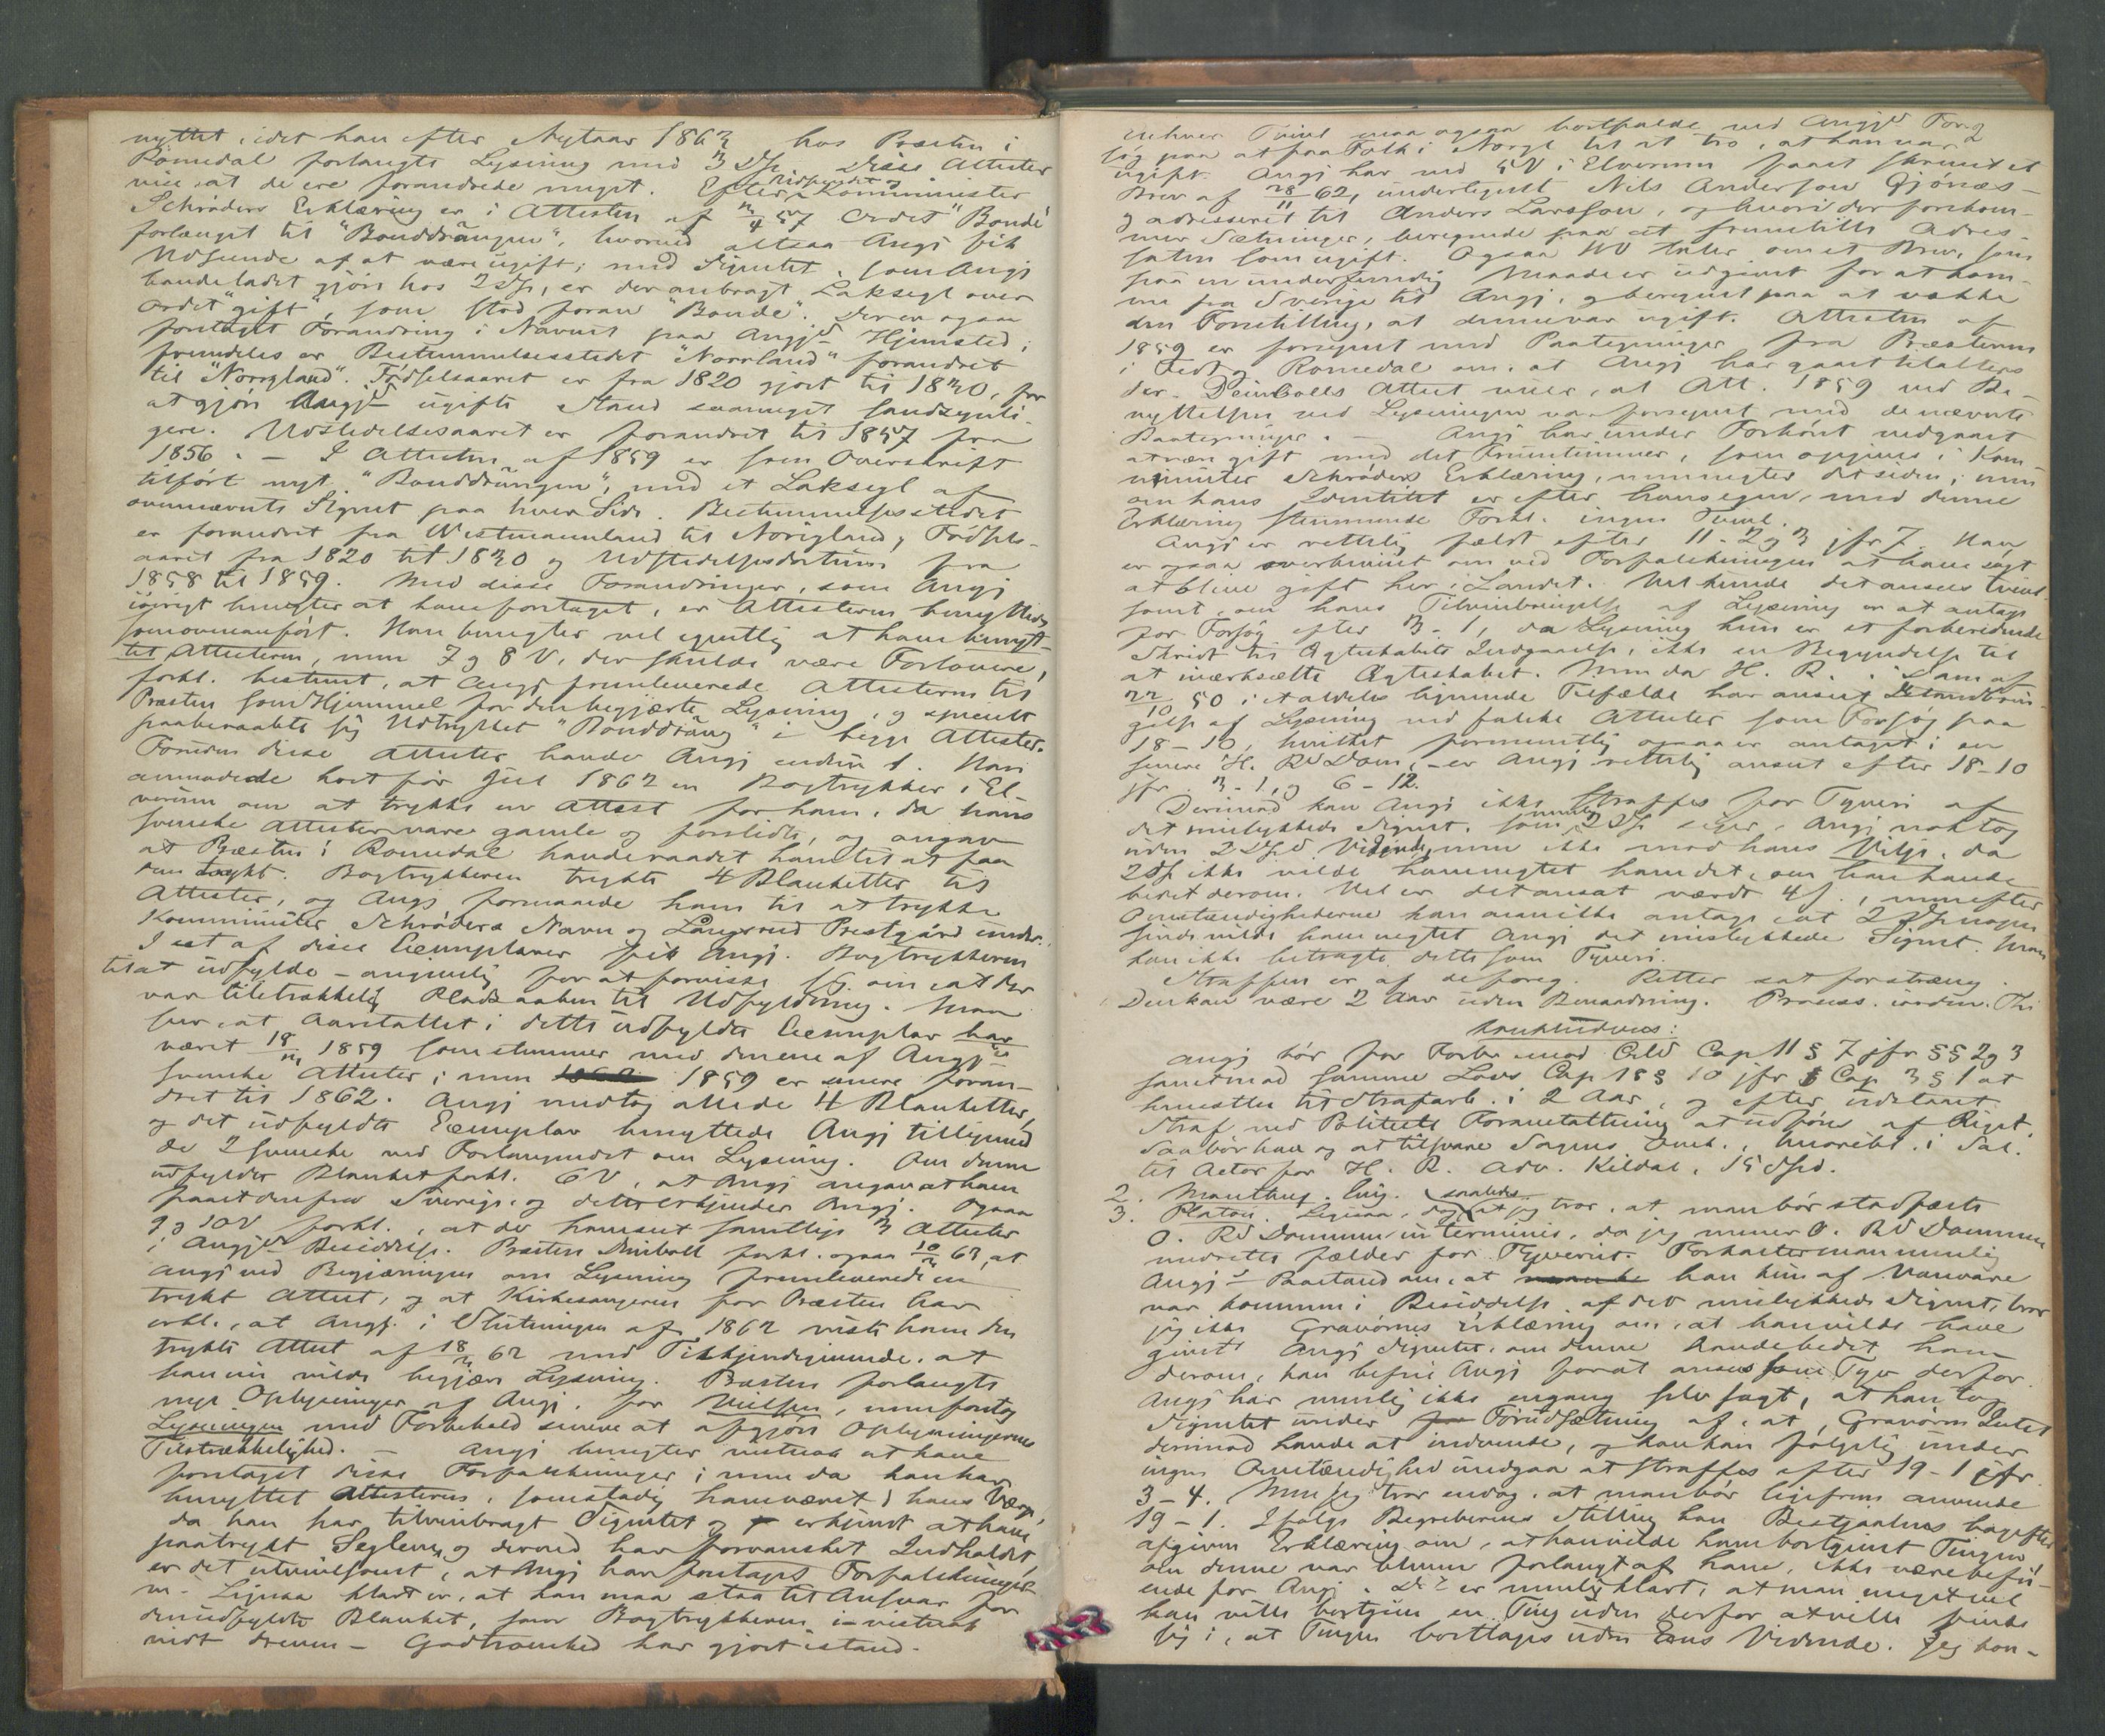 nyttet, idet han efter Nytaar 1863 hos Præsten i
Romedal forlangte Lysning med 3 Dse. Disse Attester
vise, at de ere forandrede meget. Efter Vidspredst og Komminister
Schröders Erklæring er i Attesten af 3/4 57 Ordet "Bonde"
forlænget til "Bonddrängen", hvorved altsaa Angj fik
Udseende af at være ugift; med Signetet, som Angj
havde ladet gjøre hos 2 Dse, er der anbragt Laksegl over
Ordet "gift", som stod foran "Bonde". Der er ogsaa
foretaget Forandring i Navnet paa Angjs Hjemsted;
fremdeles er Bestemmelsesstedet "Norrland" forandret
til "Norrgland". Fødselsaaret er fra 1820 gjort til 1830, for
at gjøre Angjs ugifte Stand saameget sandsynli-
gere. Udstedelsesaaret er forandret til 1857 fra
1856. — I Attesten af 1859 er som Overskrift
tilført nyt "Bonddrängen", med et Laksegl af
ovennævnte Signet paa hver Side. Bestemmelsesstedet
er forandret fra Westmannland til Norigland, Fødsels-
aaret fra 1820 til 1830 og Udstedelsesdatum fra
1858 til 1859. Med disse Forandringer, som Angj
iøvrigt benegter at have foretaget, er Attesterne benyttede
som ovenanført. Han benegter vel egentlig at have benyt-
tet Attesterne, men 7 og 8 V, der skulde være Forlovere,
forkl. bestemt, at Angj fremleverede Attesterne til
Præsten som Hjemmel for den begjærte Lysning, og specielt
paaberaabte sig Udtrykket "Bonddräng" i begge Attester.
Foruden disse Attester havde Angj endnu 1. Han
anmodede kort før Jul 1862 en Bogtrykker i El-
verum om at trykke en Attest for ham, da hans
svenske Attester vare gamle og forslidte, og angav
at Præsten i Romedal havde raadet ham til at faa
den trykt. Bogtrykkeren trykte 4 Blanketter til
Attester, og Angj formaaede ham til at trykke
Komminister Schröders Navn og Långserud Prestgård under.
I et af disse Exemplarer fik Angj Bogtrykkeren
til at udfylde — angivelig for at forvisse sig om, at der
var tilstrækkelig Plads aaben til Udfyldning. Man
ser, at Aarstallet i dette udfyldte Exemplar har
været 18/3 1859 som stemmer med den ene af Angjs
svenske Attester; men 1859 er senere foran-
dret til 1862. Angj modtog allede 4 Blanketter,
og det udfyldte Exemplar benyttede Angj tilligemed
de 2 svenske ved Forlangendet om Lysning. Om denne
udfyldte Blanket forkl. 6 V, at Angj angav at have
faaet den fra Sverige, og dette erkjender Angj. Ogsaa
9 og 10 V forkl., at der hænseet samtlige 3 Attester
i Angjs Besiddelse. Præsten Deinboll forkl. ogsaa 10/3 63, at
Angj ved Begjæringen om Lysning fremleverede en
trykt Attest, og at Kirkesangeren for Præsten har
erkl., at Angj. i Slutningen af 1862 viste ham den
trykte Attest af 18/3 62 med Tilkjendegivende, at
han nu vilde begjære Lysning. Præsten forlangte
nye Oplysninger af Angj. før Vielsen, men foretog
Lysningen med Forbehold senere at afgjøre Oplysningernes
Tilstrækkelighed. — Angj benegter vistnok at have
foretaget disse Forfalskninger; men da han har
benyttet Attesterne, som stadig have været i hans Værge,
da han har tilveiebragt Signetet og erkjendt at have
paatrykt Seglene, og derved har forvansket Indholdet,
er det utvivlsomt, at Angj har foretaget Forfalskninger-
ne. Ligesaa klart er, at han maa staa til Ansvar for
den udfyldte Blanket, som Bogtrykkeren i — vistnok
vidt dreven — Godtroenhed har gjort istand.
enhver Tvivl maa ogsaa bortfalde ved Angjs Forsøg
søg paa at faa Folk i Norge til at tro, at han var
ugift. Angj har ved 5 V i Elverum faaet skrevet et
Brev af 28/11 62, undertegnet Nils Anderson Gjönäs —
og adresseret til Anders Larsson, og hvori der forekom-
mer Sætninger, beregnede paa at fremstille Adres-
saten som ugift. Ogsaa 10 V taler om et Brev, som
paa en underfundig Maade er udgivet for at kom-
me fra Sverige til Angj, og beregnet paa at vække
den Forestilling, at denne var ugift. Attesten af
1859 er forsynet med Paategninger fra Præsterne
i Leth og Romedal om, at Angj har gaaet til alters
der. Deinbolls Attest viser, at Att. 1859 ved Be-
nyttelsen ved Lysningen var forsynet med de nævnte
Paategninger. — Angj har under Forhøret vedgaaet
at være gift med det Fruentimmer, som opgives i Kom-
minister Schröders Erklæring, men negter det siden; men
om hans Identitet er efter hans egen, med denne
Erklæring stemmende Forkl. ingen Tvivl.
Angj er rettelig fældt efter 11-2 og 3 jfr 7. Han
er ogsaa overbevist om ved Forfalskningen at have søgt
at blive gift her i Landet. Vel kunde det ansees tvivl-
somt, om hans Tilveiebringelse af Lysning er at antage
for Forsøg efter 3-1, da Lysning kun er et forberedende
Skridt til Ægteskabets Indgaaelse, ikke en Begyndelse til
at iværksætte Ægteskabet. Men da H. R. i Dom af
22/10 50 i et aldeles lignende Tilfælde har anseet Istandbrin-
gelse af Lysning ved falske Attester som Forsøg paa
18-10, hvilket formentlig ogsaa er antaget i en
senere H. Rs Dom, — er Angj rettelig anseet efter 18-10
jfr 3-1, og 6-12.
Derimod kan Angj ikke straffes for Tyveri af
det mislykkede Signet, som nemlig 2 Dse siger, Angj vel tog
uden 2 Dses Vidende, men ikke mod hans Vilje, da
2 Dse ikke vilde have negtet ham det, om han havde
bedet derom. Vel er det ansat værdt 4 ſ., men efter
Omstændighederne kan man ikke antage, at 2 Dse nogen-
sinde vilde have negtet Angj det mislykkede Signet. Man
kan ikke betragte dette som Tyveri.
Straffen er af de foreg. Retter sat for streng.
Den kan være 2 Aar uden Benaadning. Process. inden. Thi
konkluderes:
Angj bør for Forbr mod Crl Cap 11 § 7 jfr §§ 2 og 3
samt mod samme Lovs Cap 18 § 10 jfr Cap 3 § 1 at
hensættes til Strafarb. i 2 Aar, og efter udstaaet
Straf ved Politiets Foranstaltning at udføres af Riget.
Saa bør han og at tilsvare Sagens Omk., hvoribl. i Sal.
til Actor for H. R. Adv. Kildal, 15 Spd.
2. Manthey. Enig.
3. Platou. Ligesaa, dog saaledes at jeg tror, at man bør stadfæste
O. Rs Dommen in terminis, da jeg mener O. Rs Dommen
med rette fælder for Tyveriet. Forkaster man nemlig
Angjs Paastand om, at han kun af Vanvare
var kommen i Besiddelse af det mislykkede Signet, tror
jeg ikke Gravørens Erklæring om, at han vilde have
givet Angj Signetet, om denne havde bedet ham
derom, kan befri Angj for at ansees som Tyv derfor.
Angj har nemlig ikke engang selv sagt, at han tog
Signetet under Forudsætning af, at Gravøren Intet
derimod havde at indvende, og han kan følgelig under
ingen Omstændighed undgaa at straffes efter 19-1 jfr
3-4. Men jeg tror endog, at man bør ligefrem anvende
19-1. Ifølge Begreberne Stilling kan Bestjaalnes bagefter
afgivne Erklæring om, at han vilde have bortgivet Tingen,
om denne var bleven forlangt af ham, ikke være befri-
ende for Angj. Det er nemlig klart, at man meget vel
kan ville bortgive en Ting uden derfor at ville finde
sig i, at Tingen borttages uden Ens Vidende. Jeg kon-